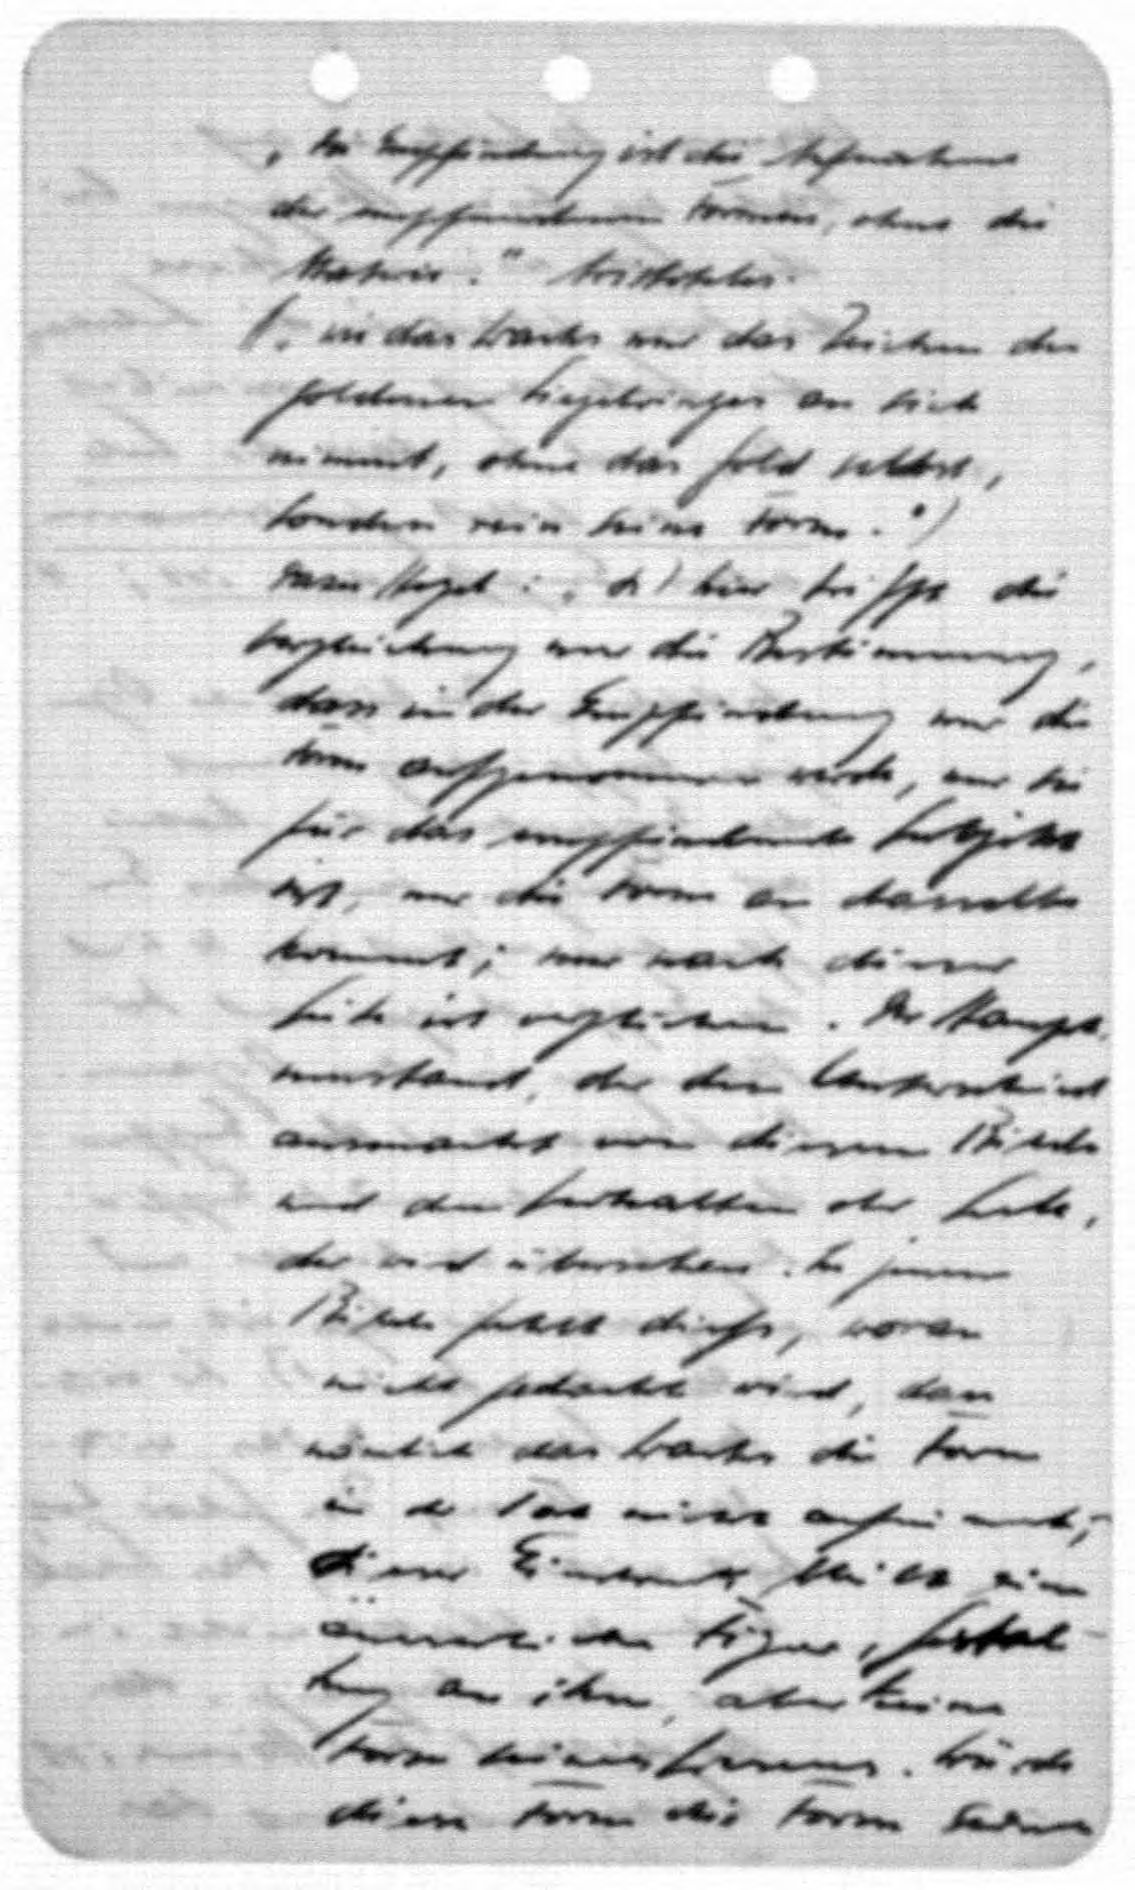 „Die Empfindung ist die Aufnahme
der empfundenen Formen, ohne die
Materie." Aristoteles.
(„wie das Wachs nur das Zeichen des
goldenen Siegelringes an sich
nimmt, ohne das Gold selbst,
sondern rein seine Form.")
Dazu Hegel: „d) hier trifft die
Vergleichung nur die Bestimmung,
dass in der Empfindung nur die
Form aufgenommen werde, nur sie
für das empfindende Subjekt
ist, nur die Form an dasselbe
kommt; nur nach dieser
Seite ist verglichen. Der Haupt-
umstand, der den Unterschied
ausmacht von diesem Bilde
und dem Verhalten der Seele,
der wird übersehen. In jenem
Bilde fehlt diess, woran
nicht gedacht wird, dass
nämlich das Wachs die Form
in der Tat nicht aufnimmt;
dieser Eindruck bleibt eine
äusserliche Figur, Gestal-
tung an ihm, aber keine
Form seines Wesens. Würde
diese Form die Form seines